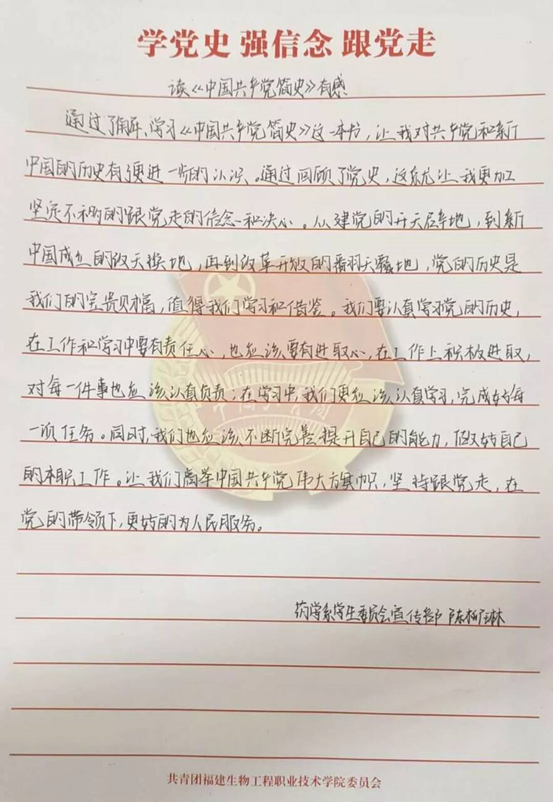 学党史 强信念 跟党走
读《中国共产党简史》有感
通过了解、学习《中国共产党简史》这一本书，让我对共产党和新
中国的历史有了更进一步的认识。通过回顾了党史，这就让我更加
坚定不移的跟党走的信念和决心。从建党的开天辟地，到新
中国成立的改天换地，再到改革开放的翻天覆地，党的历史是
我们的宝贵财富，值得我们学习和借鉴。我们要认真学习党的历史，
在工作和学习中要有责任心，也应该要有进取心，在工作上积极进取，
对每一件事也应该认真负责；在学习中，我们更应该认真学习，完成好每
一项任务。同时，我们也应该不断完善提升自己的能力，做好自己
的本职工作。让我们高举中国共产党伟大旗帜，坚持跟党走，在
党的带领下，更好的为人民服务。
药学系学生委员会宣传部 陈 琳
共青团福建生物工程职业技术学院委员会